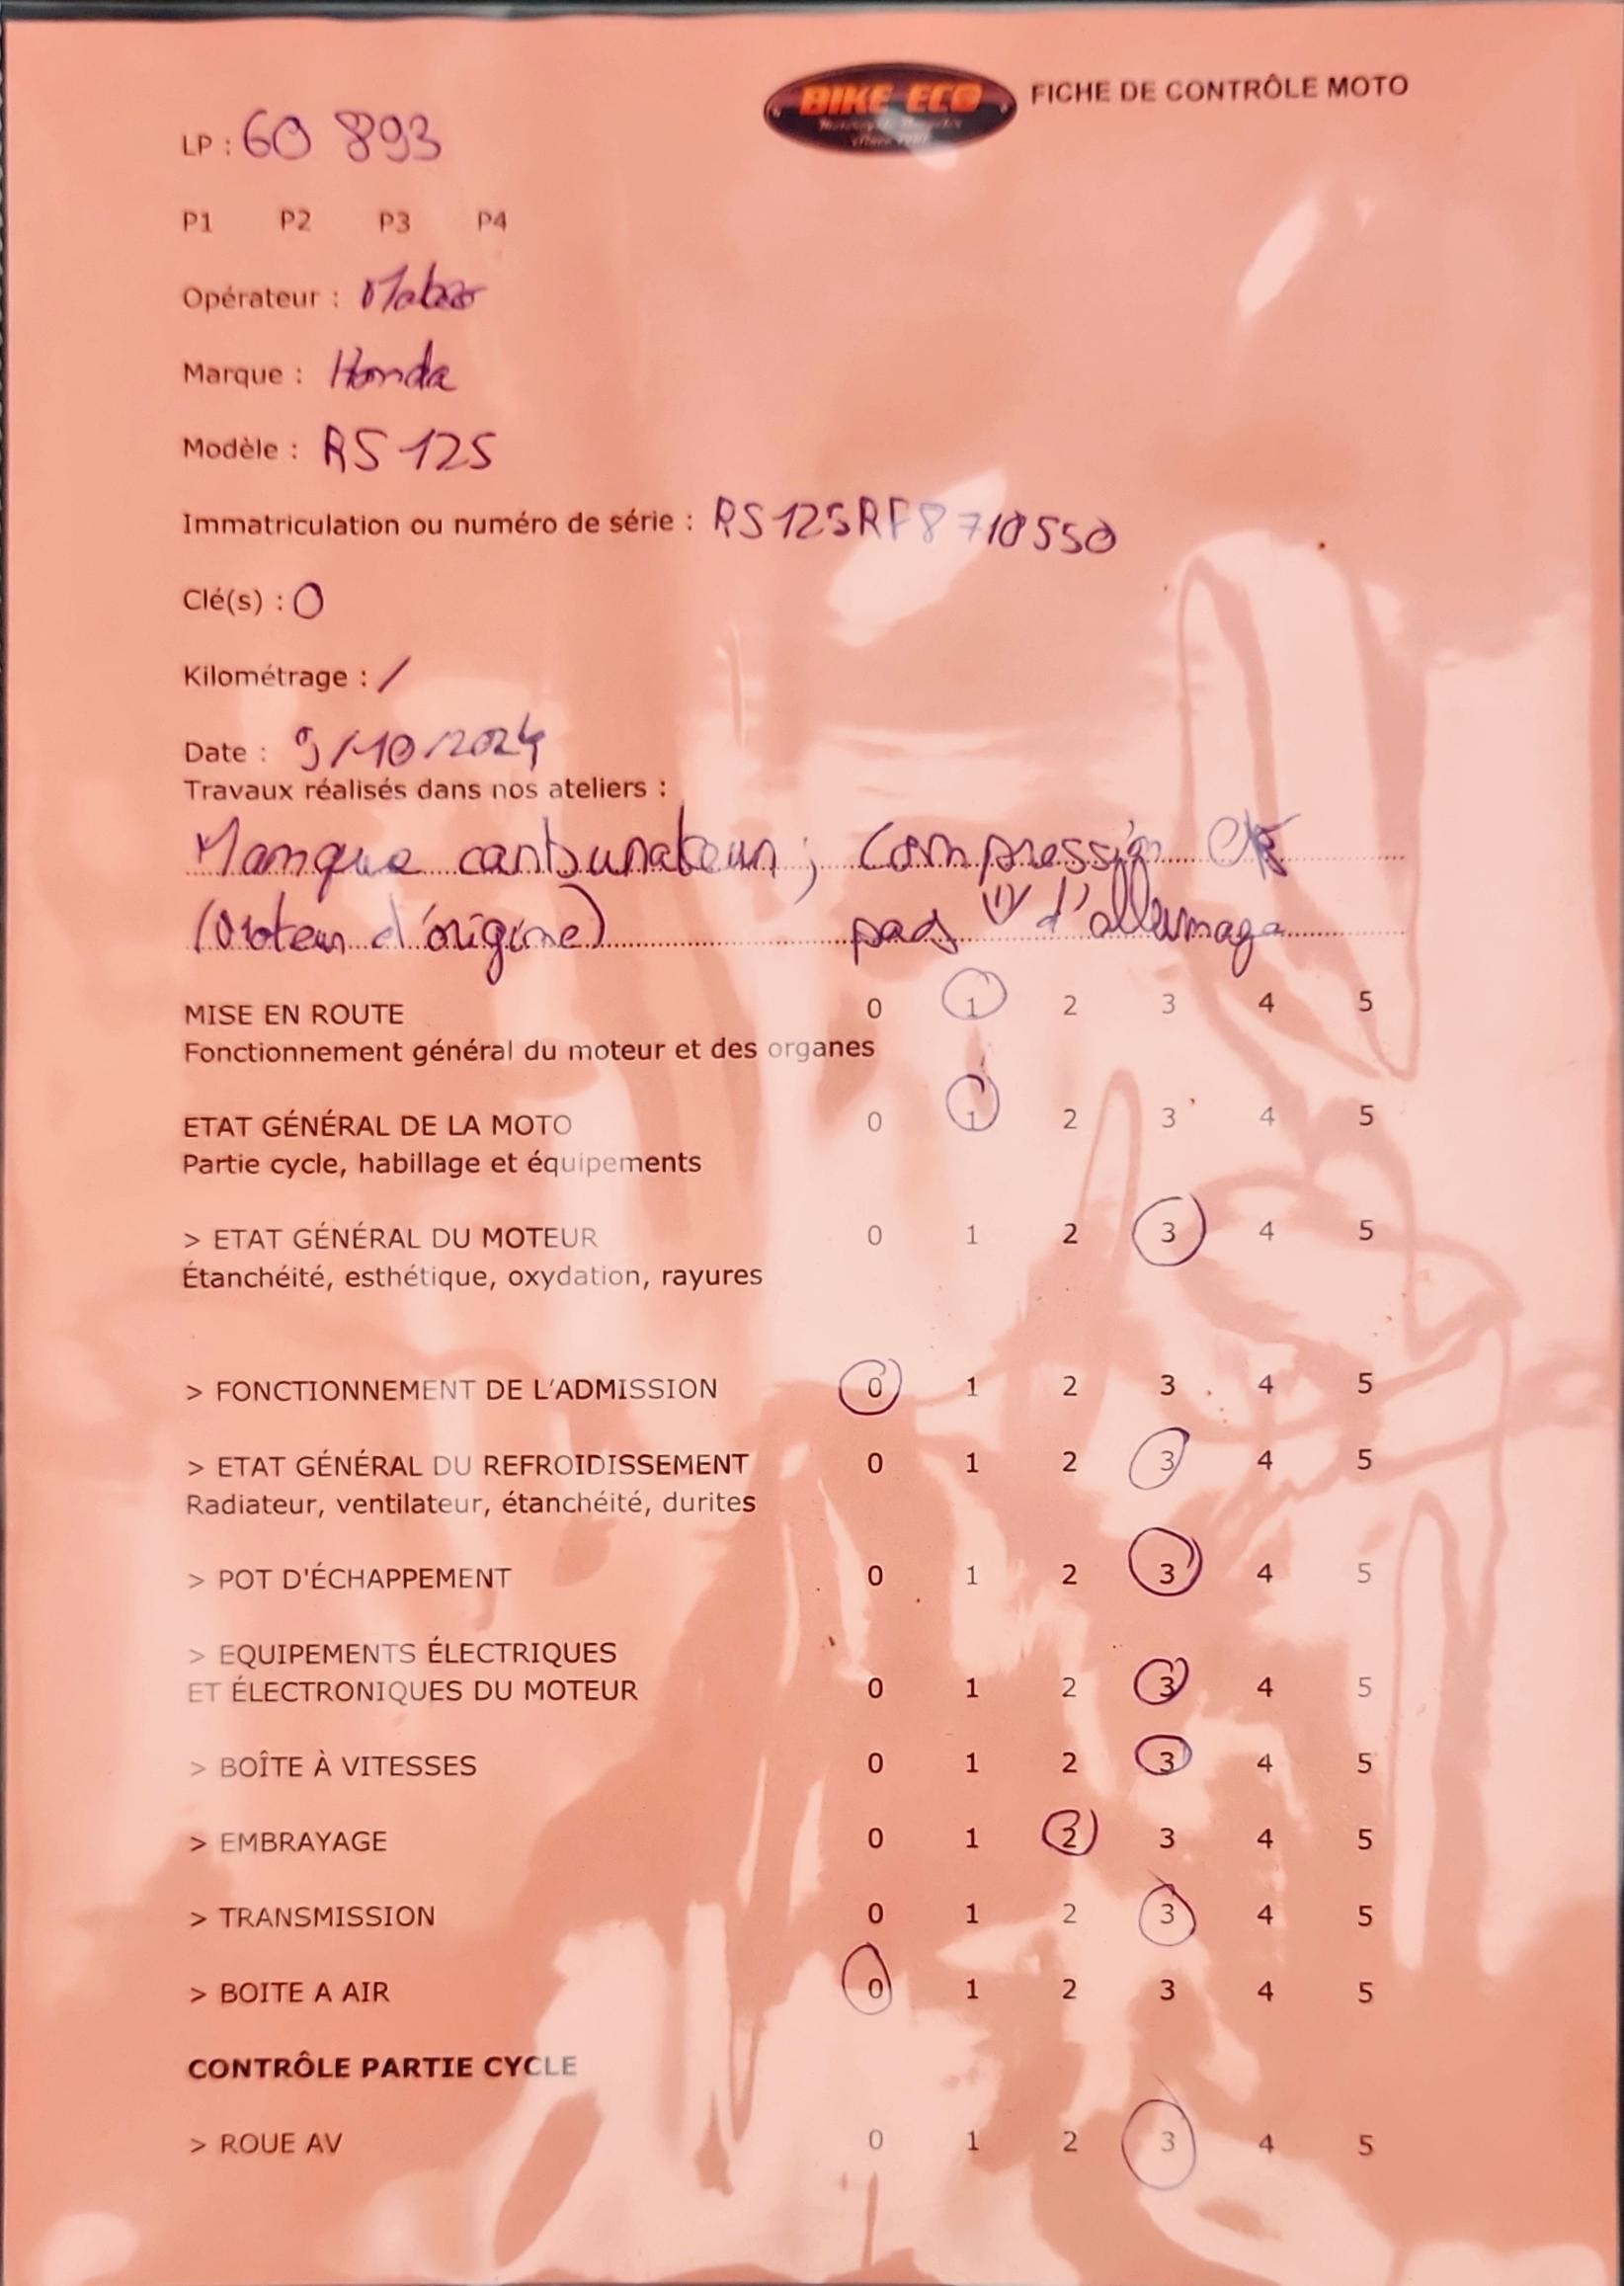 BIKE ECO
FICHE DE CONTRÔLE MOTO
LP : 60 893
P1 P2 P3 P4
Opérateur :
Marque : Honda
Modèle : RS 125
Immatriculation ou numéro de série : RS125RF8710550
Clé(s) : 0
Kilométrage : /
Date : 9/10/2024
Travaux réalisés dans nos ateliers :
Manque carburateur ; Compression OK
(Moteur d'origine) pas d'allumage
MISE EN ROUTE 0 1 2 3 4 5
Fonctionnement général du moteur et des organes
ETAT GÉNÉRAL DE LA MOTO 0 1 2 3 4 5
Partie cycle, habillage et équipements
> ETAT GÉNÉRAL DU MOTEUR 0 1 2 3 4 5
Étanchéité, esthétique, oxydation, rayures
> FONCTIONNEMENT DE L'ADMISSION 0 1 2 3 4 5
> ETAT GÉNÉRAL DU REFROIDISSEMENT 0 1 2 3 4 5
Radiateur, ventilateur, étanchéité, durites
> POT D'ÉCHAPPEMENT 0 1 2 3 4 5
> EQUIPEMENTS ÉLECTRIQUES
ET ÉLECTRONIQUES DU MOTEUR 0 1 2 3 4 5
> BOÎTE À VITESSES 0 1 2 3 4 5
> EMBRAYAGE 0 1 2 3 4 5
> TRANSMISSION 0 1 2 3 4 5
> BOITE A AIR 0 1 2 3 4 5
CONTRÔLE PARTIE CYCLE
> ROUE AV 0 1 2 3 4 5